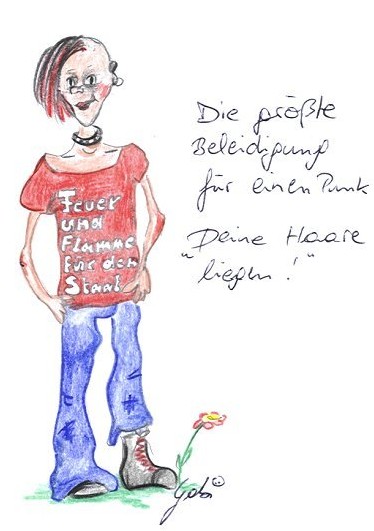 Die größte
Beleidigung
für einen Punk
„Deine Haare
liegen!"
Feuer
und
Flamme
für den
Staat
Gabi